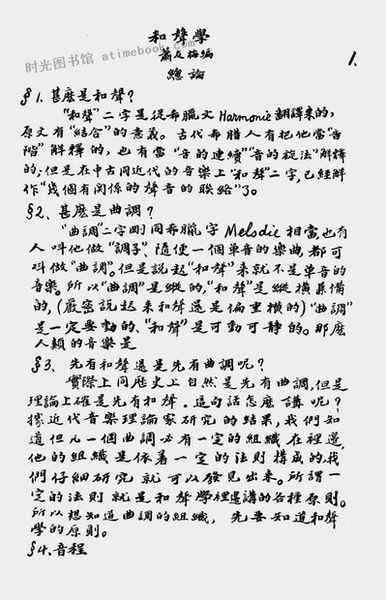 和聲學
时光图书馆 atimebook.com
蕭友梅編
1.
總論
§1. 甚麽是和聲？
"和聲"二字是從希臘文Harmonie翻譯來的，
原文有"結合"的意義。古代希腊人有把他當"音
階"解釋的，也有當"音的連續""音的旋法"解釋
的；但是在中古同近代的音樂上"和聲"二字，已經解
作"幾個有関係的聲音的联络"了。
§2. 甚麽是曲調？
"曲調"二字剛同希臘字Melodie相當，也有
人叫他做"調子"、隨便一個單音的樂曲，都可
叫做"曲調"。但是說起"和聲"来就不是單音的
音樂，所以"曲調"是縱的，"和聲"是縱横兼備
的，(嚴密說起来和聲還是偏重横的)"曲調"
是一定要動的，"和聲"是可動可静的。那麽
人類的音樂是
§3. 先有和聲還是先有曲調呢？
實際上同歷史上自然是先有曲調，但是
理論上確是先有和聲。這句話怎麽講呢？
據近代音樂理論家研究的結果，我們知
道但凡一個曲調必有一定的組織在裡邊，
他的組織是依着一定的法則構成的，我
們仔細研究就可以發見出来。所謂一
定的法則就是和聲學裡邊講的各種原則。
所以想知道曲調的組織，先要知道和聲
學的原則。
§4. 音程